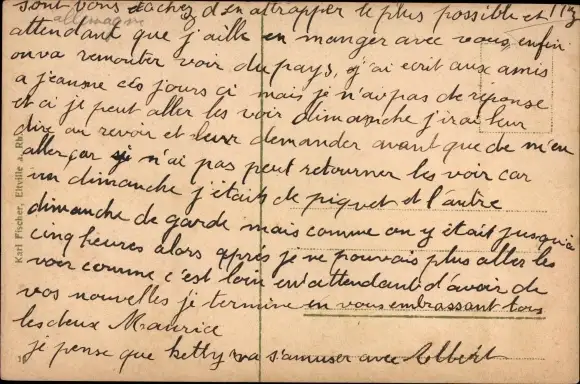 sont vous tachez d'en attrapper le plus possible et
allemagne
attendant que j'aille en manger avec vous enfin
on va remonter voir du pays, j'ai ecrit aux amis
a jeanne ces jours ci mais je n'ai pas de reponse
et ci je peut aller les voir dimanche j'irai leur
dire au revoir et leur demander avant que de m'en
aller car je n'ai pas peut retourner les voir car
un dimanche j'étais de piquet et l'autre
dimanche de garde mais comme on y était jusqu'a
cinq heures alors après je ne pouvais plus aller les
voir comme c'est loin en attendant d'avoir de
vos nouvelles je termine en vous embrassant tous
les deux Maurice
je pense que ketty va s'amuser avec Albert
Karl Fischer, Eltville a. Rh.